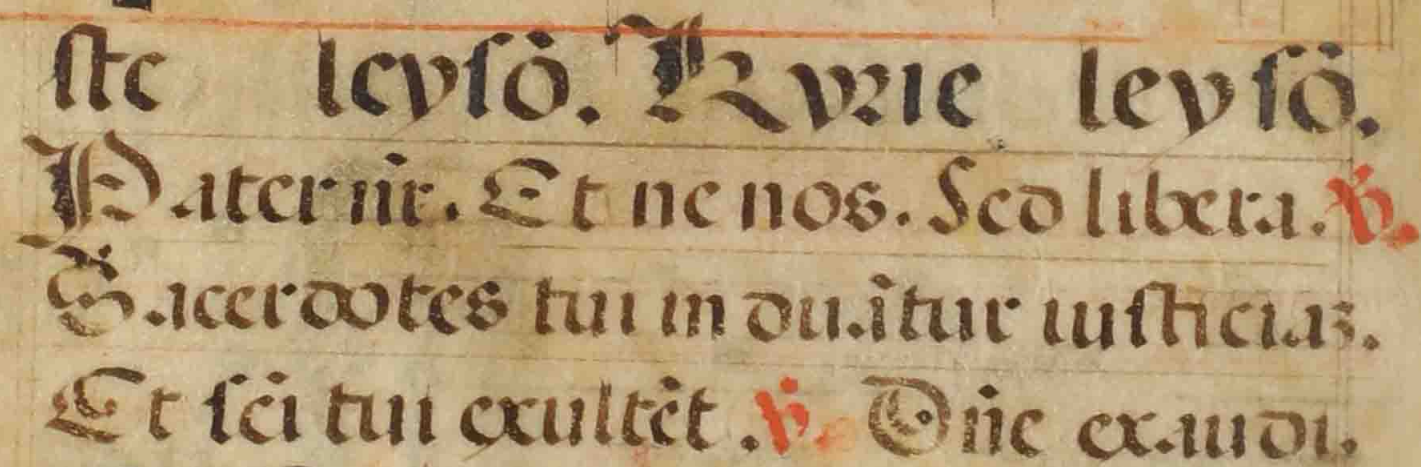 ste leysō. Kyrie leysō.
Pater nr̄. Et ne nos. Sed libera. ℣.
Sacerdotes tui induātur iusticiaz.
Et sc̄i tui exultēt. ℣. Dn̄e exaudi.